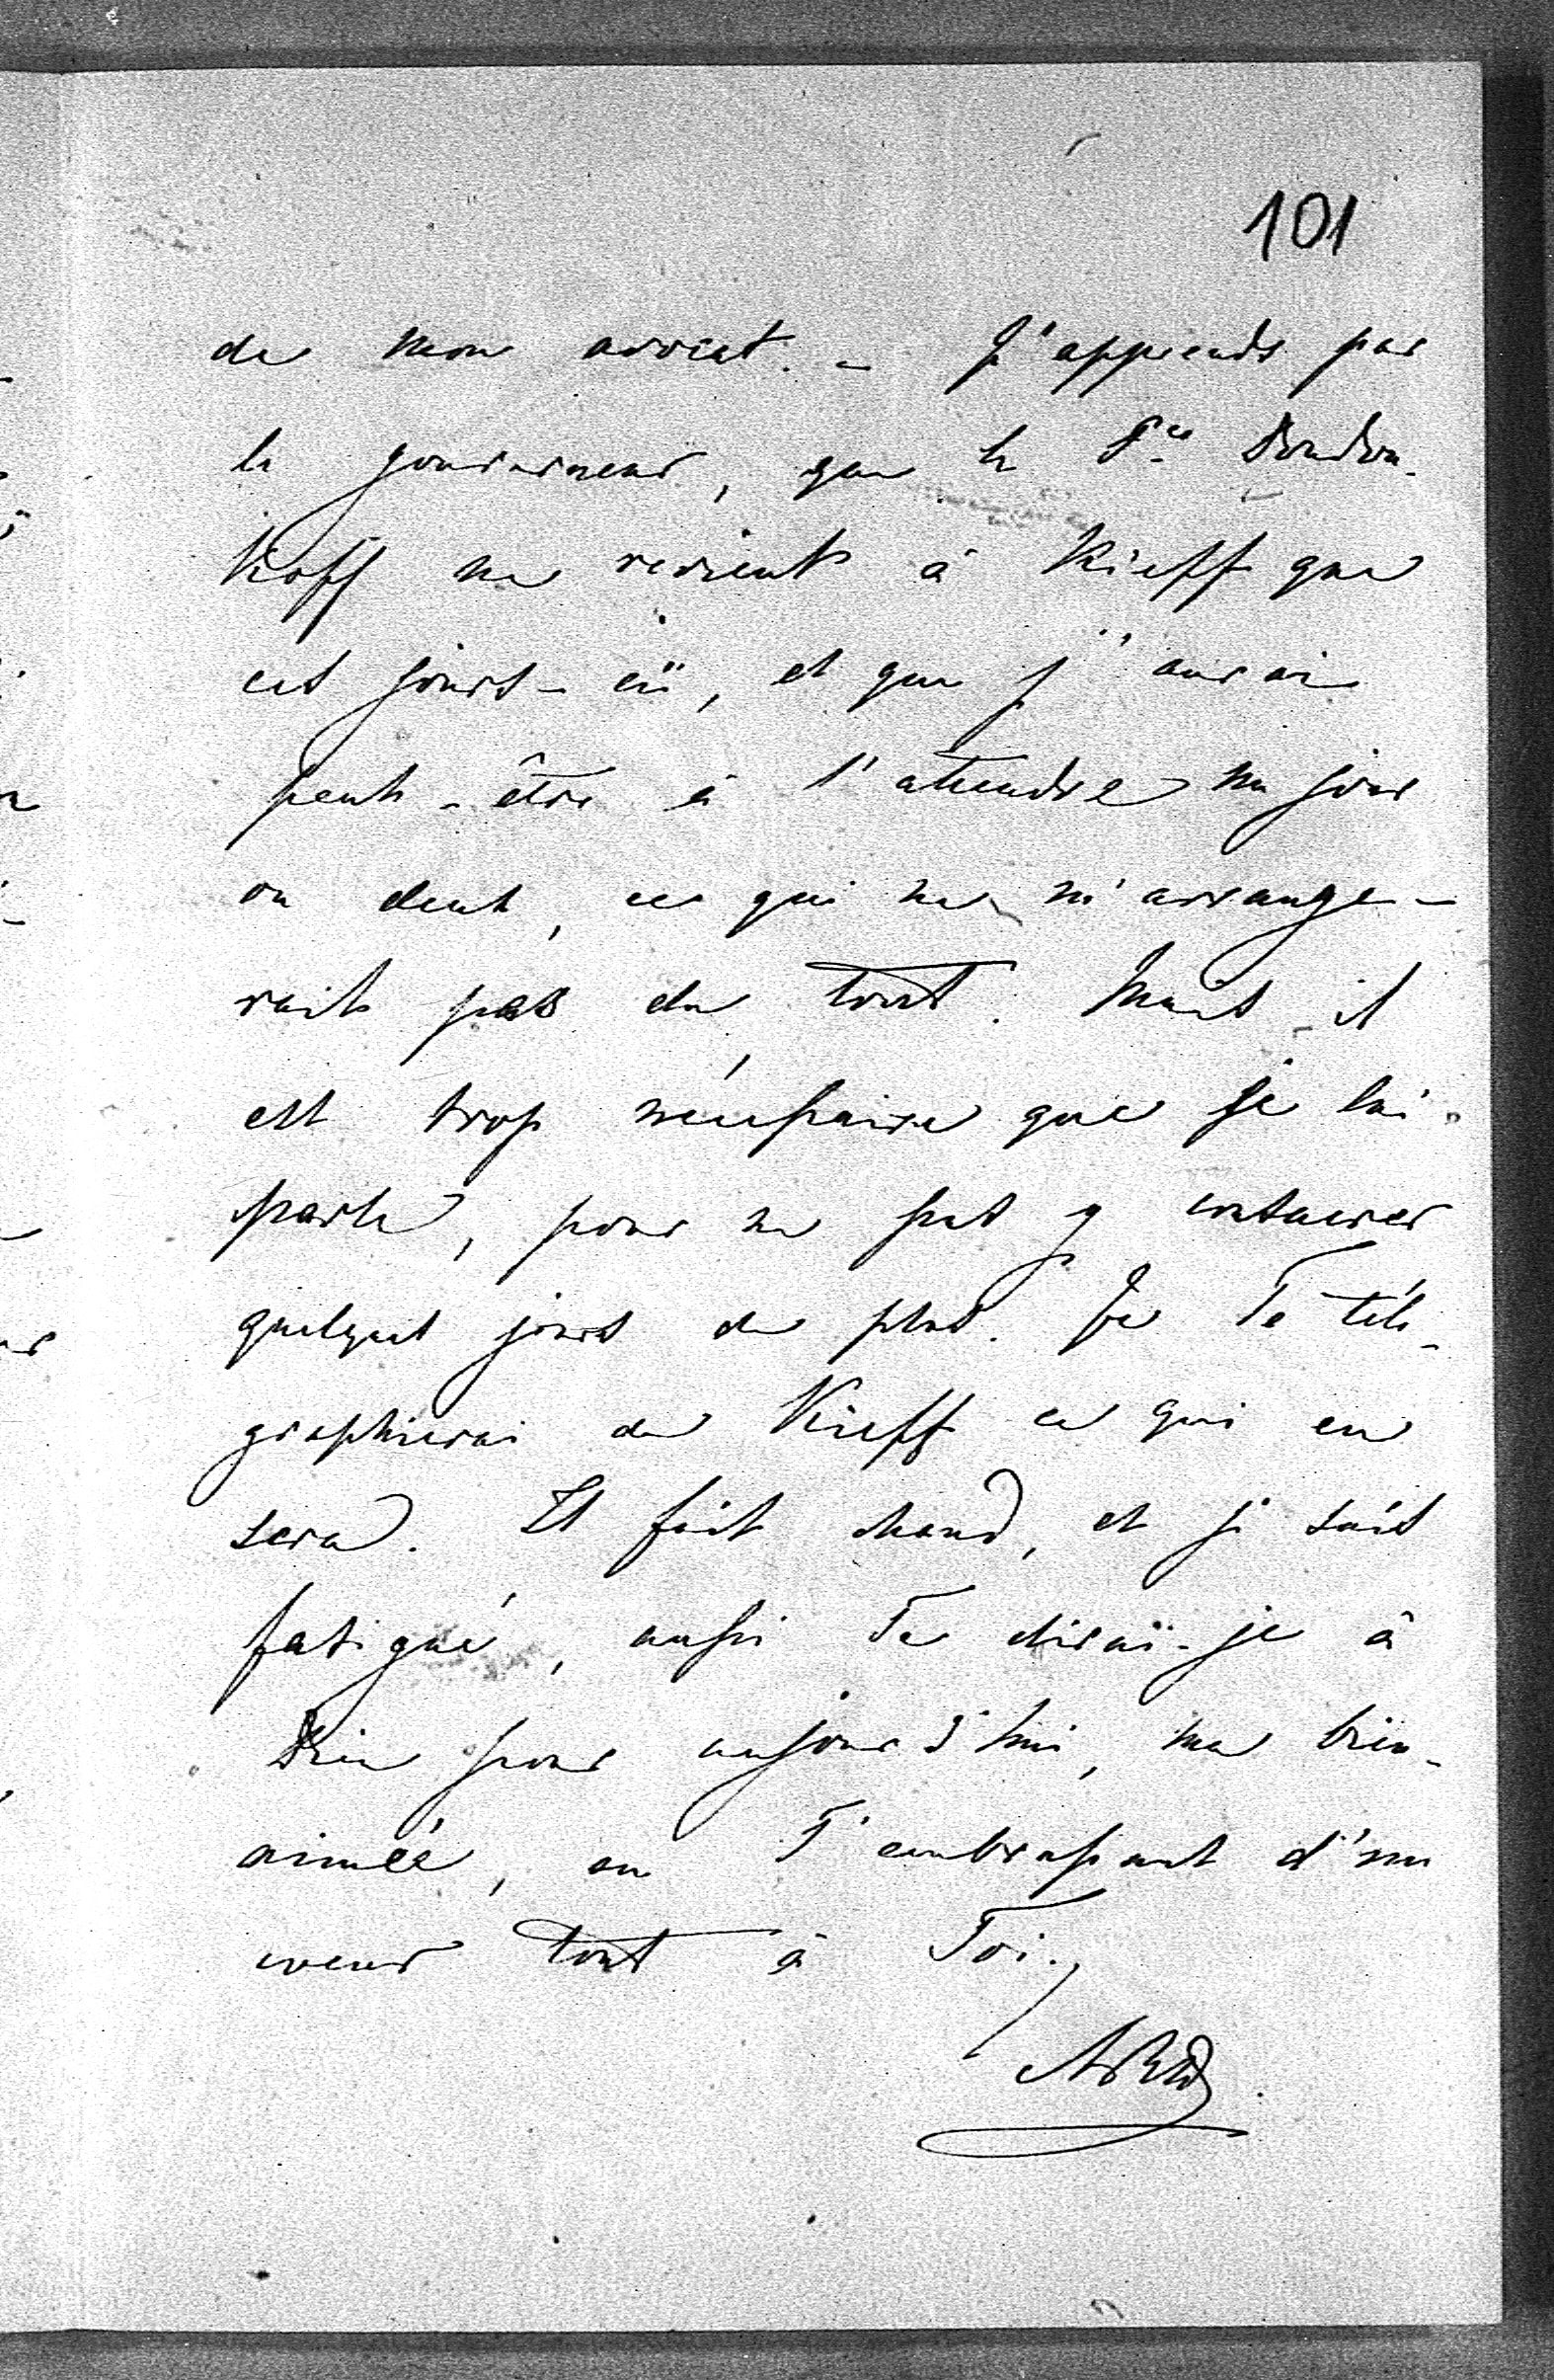 101
de mon avocat. – J'apprends par
le gouverneur, que le Pce Dondou-
koff ne revient à Kieff que
ces jours-ci, et que j'aurai
peut-être à l'attendre un jour
ou deux, ce qui ne m'arrange-
rait pas du tout. Mais il
est trop nécessaire que je lui
parle, pour ne pas y consacrer
quelques jours de plus. Je Te télé-
graphierai de Kieff ce qui en
sera. Il fait chaud, et je suis
fatigué, aussi Te dirai-je à
Dieu pour aujourd'hui, ma bien-
aimée, en T'embrassant d'un
coeur tout à Toi.